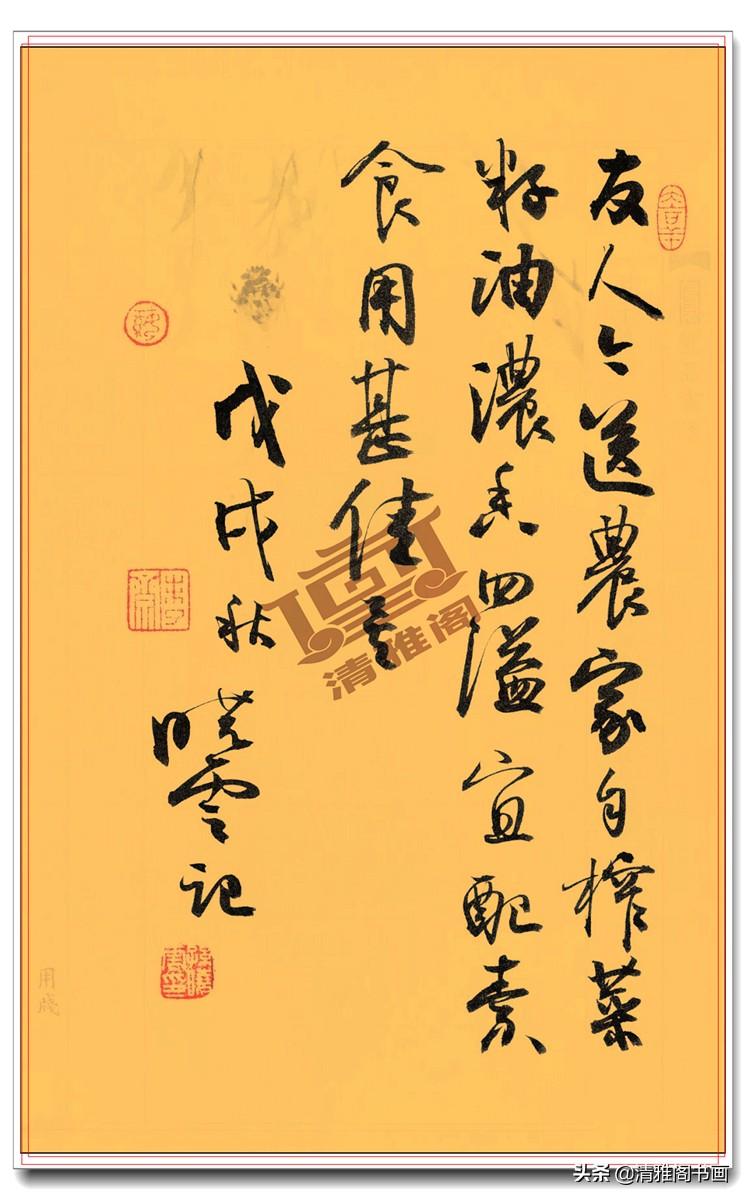 友人今送農家自榨菜
籽油濃香四溢宜配素
食用甚佳云
戊戌秋 曉雲記
用箋
清雅阁
头条 @清雅阁书画